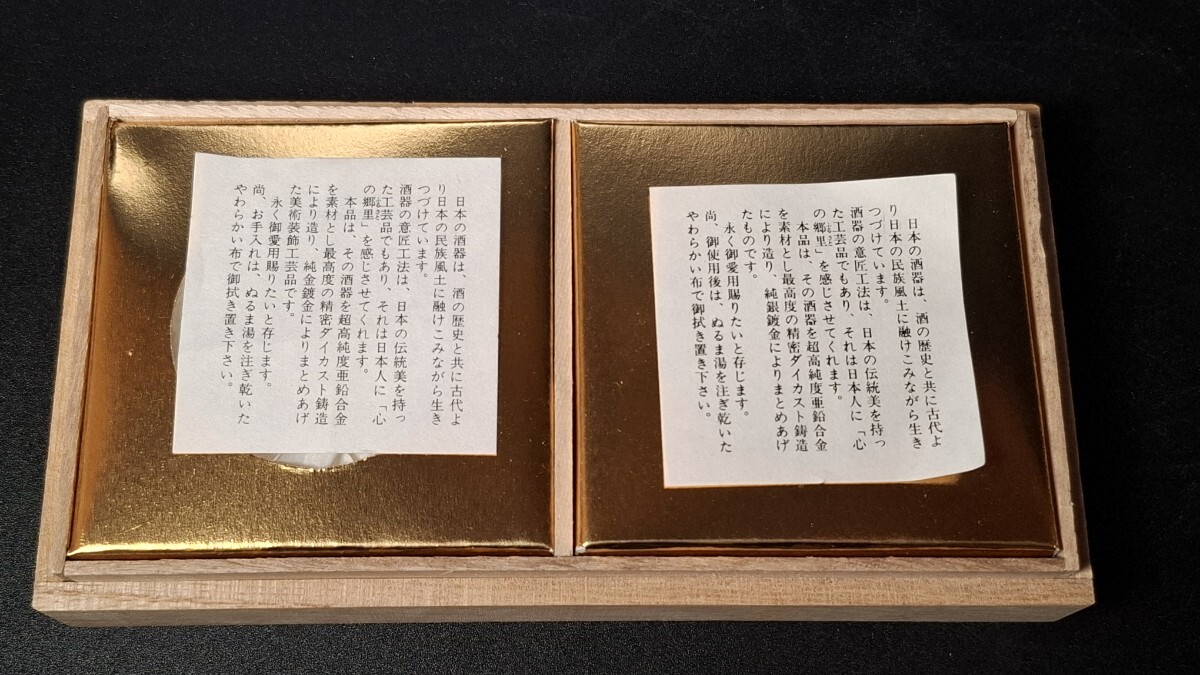 日本の酒器は、酒の歴史と共に古代よ
り日本の民族風土に融けこみながら生き
つづけています。
酒器の意匠工法は、日本の伝統美を持っ
た工芸品でもあり、それは日本人に「心
の郷里」を感じさせてくれます。
本品は、その酒器を超高純度亜鉛合金
を素材とし最高度の精密ダイカスト鋳造
により造り、純金鍍金によりまとめあげ
た美術装飾工芸品です。
永く御愛用賜りたいと存じます。
尚、お手入れは、ぬるま湯を注ぎ乾いた
やわらかい布で御拭き置き下さい。
日本の酒器は、酒の歴史と共に古代よ
り日本の民族風土に融けこみながら生き
つづけています。
酒器の意匠工法は、日本の伝統美を持っ
た工芸品でもあり、それは日本人に「心
の郷里」を感じさせてくれます。
本品は、その酒器を超高純度亜鉛合金
を素材とし最高度の精密ダイカスト鋳造
により造り、純銀鍍金によりまとめあげ
たものです。
永く御愛用賜りたいと存じます。
尚、御使用後は、ぬるま湯を注ぎ乾いた
やわらかい布で御拭き置き下さい。